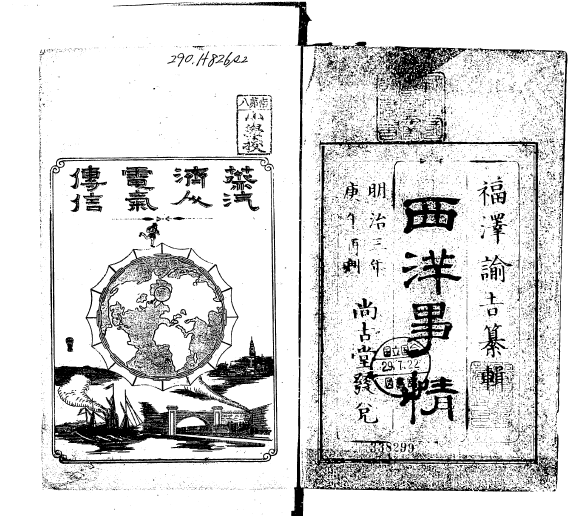 福澤諭吉纂輯
西洋事情
明治三年
庚午再刻
尚古堂發兌
338299
29.7.22
290.H826s2
小學校
蒸汽
濟人
電氣
傳信